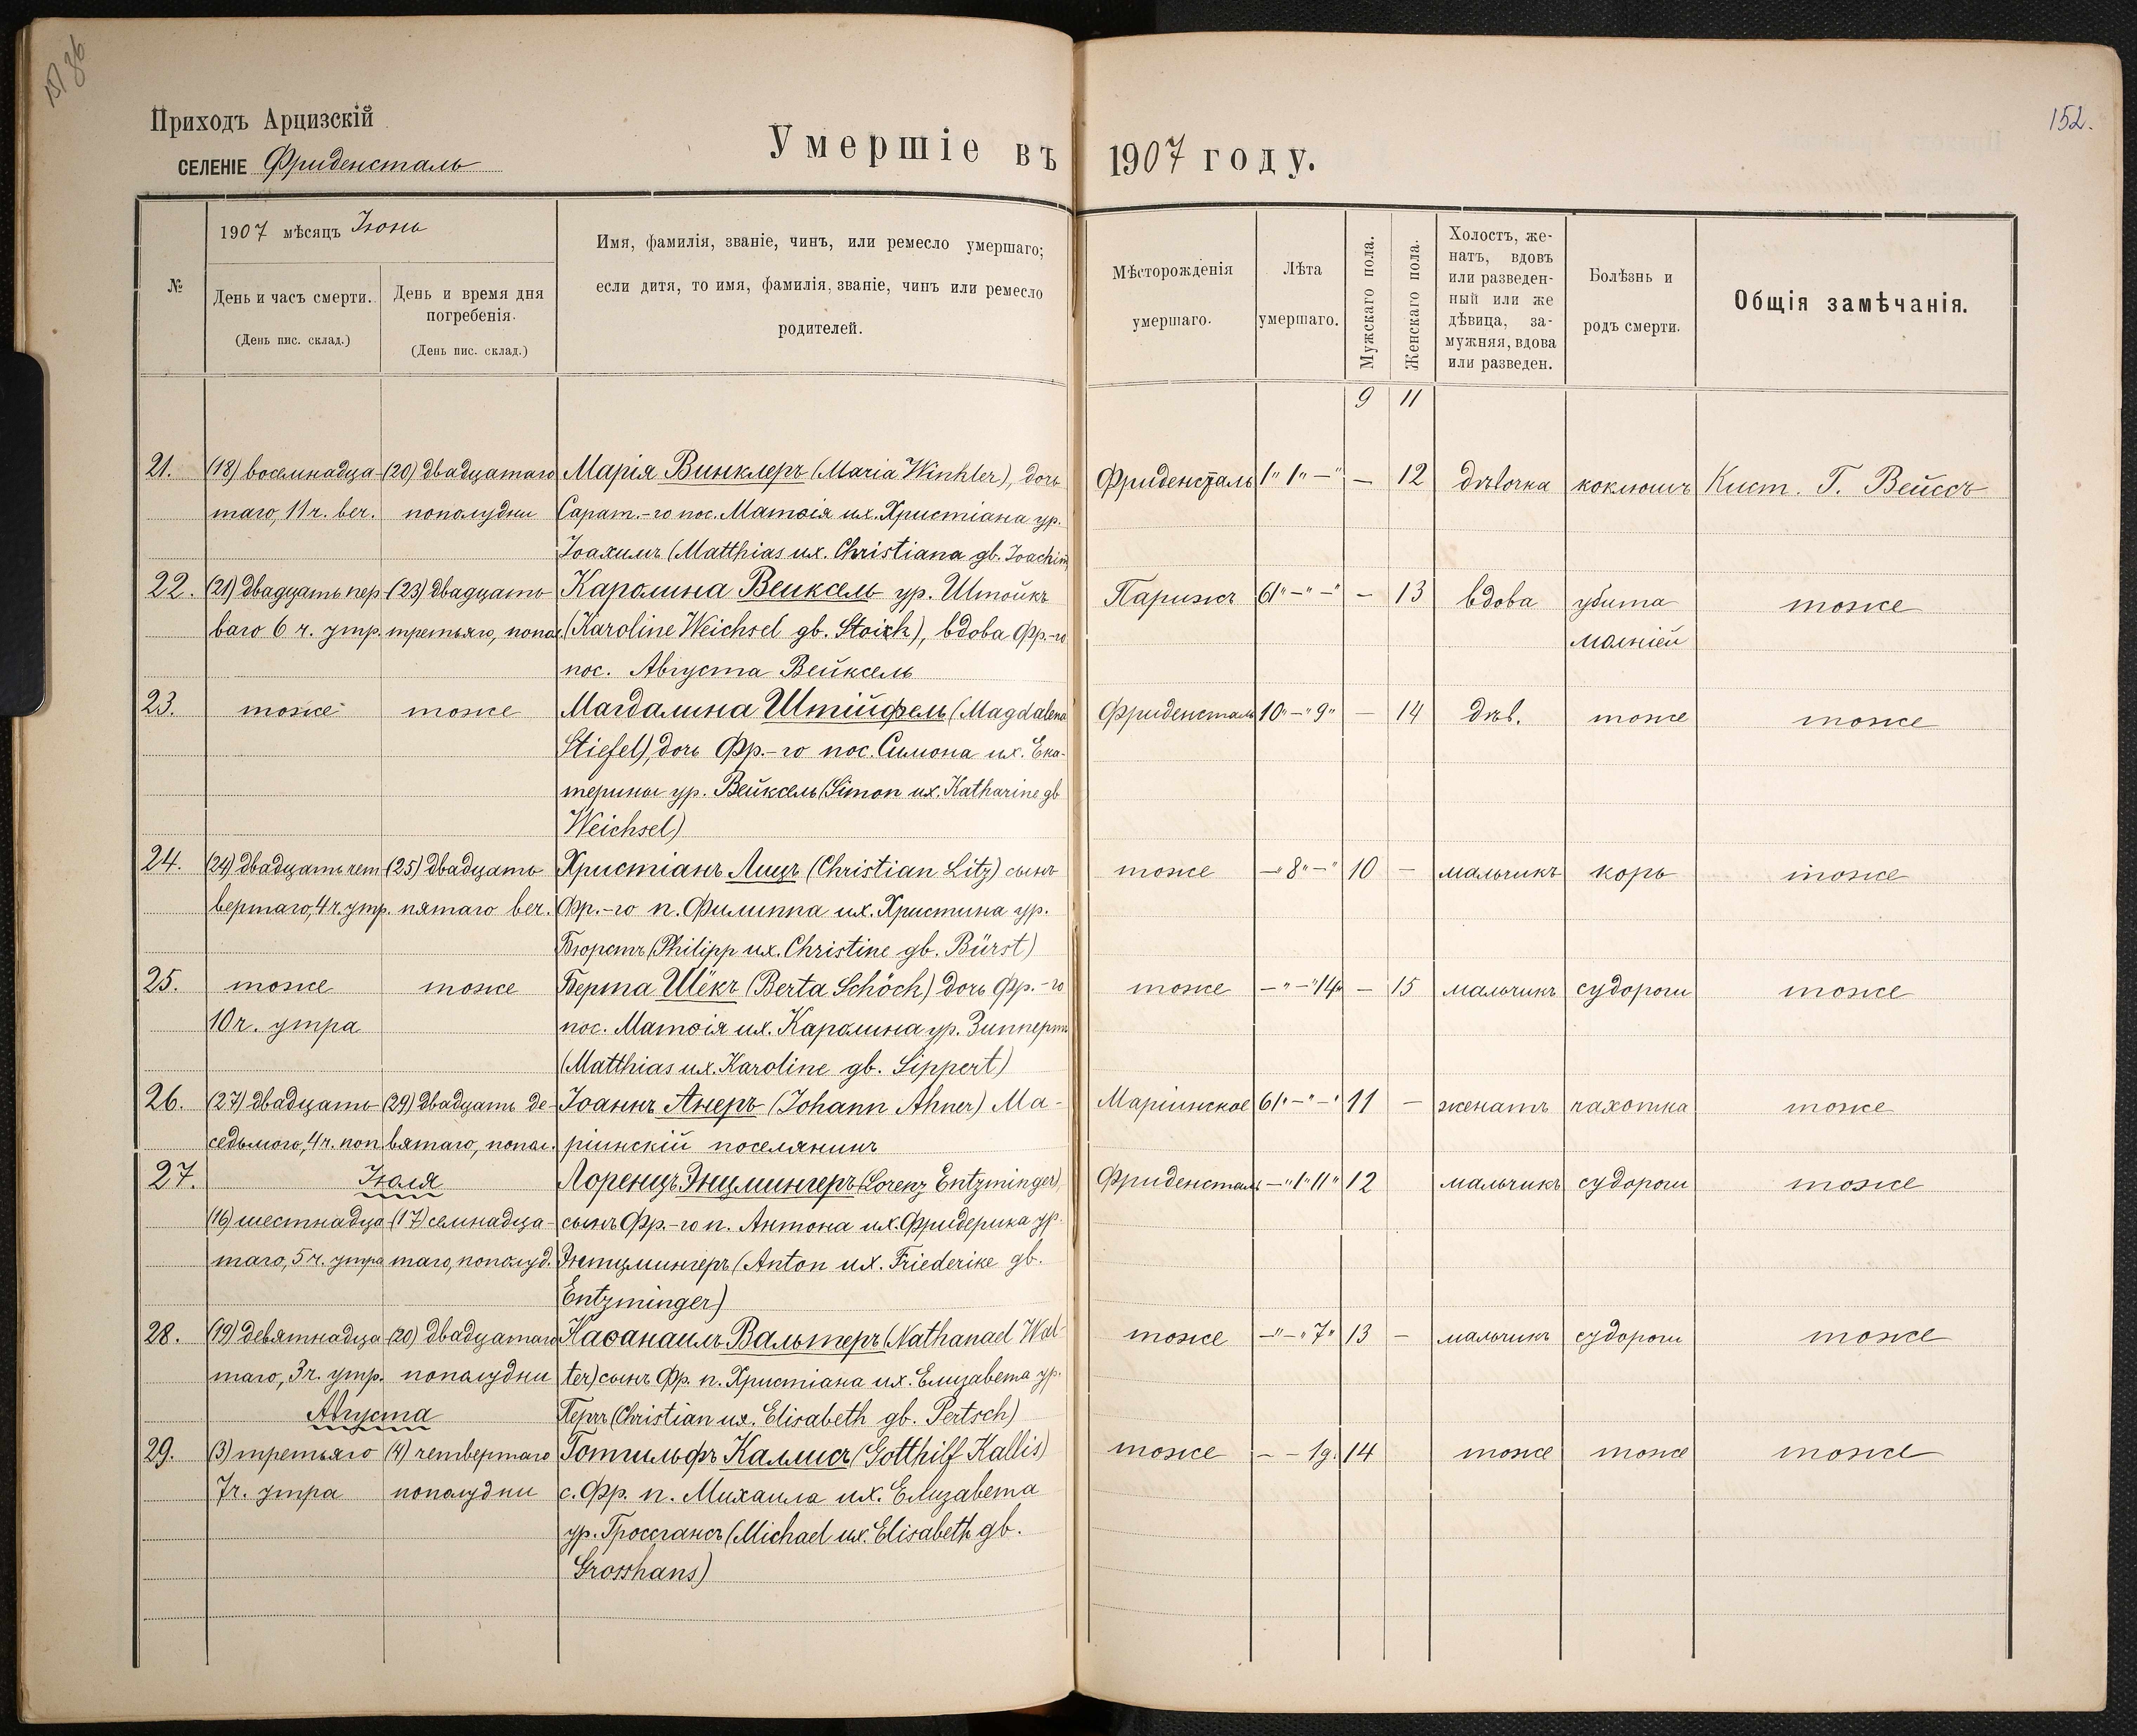 152.
Приходъ Арцизскій
СЕЛЕНІЕ Фриденсталь
Умершіе въ 1907 году.
№
1907 мѣсяцъ Іюнь
День и часъ смерти.
(День пис. склад.)
День и время дня
погребенія.
(День пис. склад.)
Имя, фамилія, званіе, чинъ, или ремесло умершаго;
если дитя, то имя, фамилія, званіе, чинъ или ремесло
родителей.
Мѣсторожденія
умершаго.
Лѣта
умершаго.
Мужскаго пола.
Женскаго пола.
Холостъ, же-
натъ, вдовъ
или разведен-
ный или же
дѣвица, за-
мужняя, вдова
или разведен.
Болѣзнь и
родъ смерти.
Общія замѣчанія.
9 11
21. (18) восемнадца- (20) двадцатаго Марія Винклеръ (Maria Winkler), дочь Фриденсталь 1" 1" —" — 12 дѣвочка коклюшъ Кист. Г. Вейссъ
таго, 11 ч. веч. пополудни Сарат.-го пос. Матѳія их. Христіана ур.
Іоахимъ (Matthias их. Christiana gb. Joachim)
22. (21) двадцать пер (23) двадцать Каролина Веиксель ур. Штойкъ Парижъ 61" —" —" — 13 вдова убита тоже
ваго 6 ч. утр. третьяго, попол. (Karoline Weichsel gb. Stoick), вдова Фр.-го молніей
пос. Августа Вейксель
23. тоже тоже Магдалина Штійфель (Magdalena Фриденсталь 10" —" 9" — 14 дѣв. тоже тоже
Stiefel), дочь Фр.-го пос. Симона их. Ека-
терины ур. Вейксель (Simon их. Katharine gb
Weichsel)
24. (24) двадцать чет (25) двадцать Христіанъ Лицъ (Christian Litz) сынъ тоже —" 8" —" 10 — мальчикъ корь тоже
вертаго, 4 ч. утр. пятаго веч. Фр.-го п. Филиппа их. Христина ур.
Бюрстъ (Philipp их. Christine gb. Bürst)
25. тоже тоже Берта Шёкъ (Berta Schöch) дочь Фр.-го тоже —" —" 14" — 15 мальчикъ судороги тоже
10 ч. утра пос. Матѳія их. Каролина ур. Зиппертъ
(Matthias их. Karoline gb. Sippert)
26. (27) двадцать (29) двадцать де- Іоаннъ Анеръ (Johann Ahner) Ма- Маріинское 61" —" —" 11 — женатъ чахотка тоже
седьмого, 4 ч. поп. вятаго, попол. ріинскій поселянинъ
27. Іюля Лоренцъ Энцмингеръ (Lorenz Entzminger), Фриденсталь —" 1" 11" 12 мальчикъ судороги тоже
(16) шестнадца (17) семнадца- сынъ Фр.-го п. Антона их. Фридерика ур.
таго, 5 ч. утра таго, пополуд. Энтцмингеръ (Anton их. Friederike gb.
Entzminger)
28. (19) девятнадца (20) двадцатаго Наѳанаилъ Вальтеръ (Nathanael Wal- тоже —" —" 7" 13 — мальчикъ судороги тоже
таго, 3 ч. утр. пополудни ter) сынъ Фр. п. Христіана их. Елизавета ур.
Августа Перчъ (Christian их. Elisabeth gb. Pertsch)
29. (3) третьяго (4) четвертаго Готгильфъ Каллисъ (Gotthilf Kallis) тоже — — 1g. 14 тоже тоже тоже
7 ч. утра пополудни с. Фр. п. Михаила их. Елизавета
ур. Гроссгансъ (Michael их. Elisabeth gb.
Grosshans)